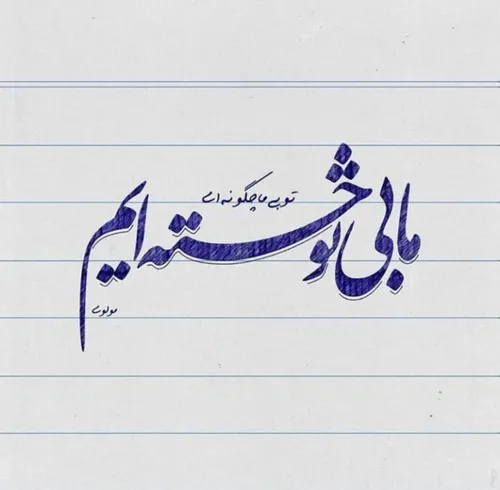 ما بی تو خسته ایم
تو بی ما چگونه ای
مولوی